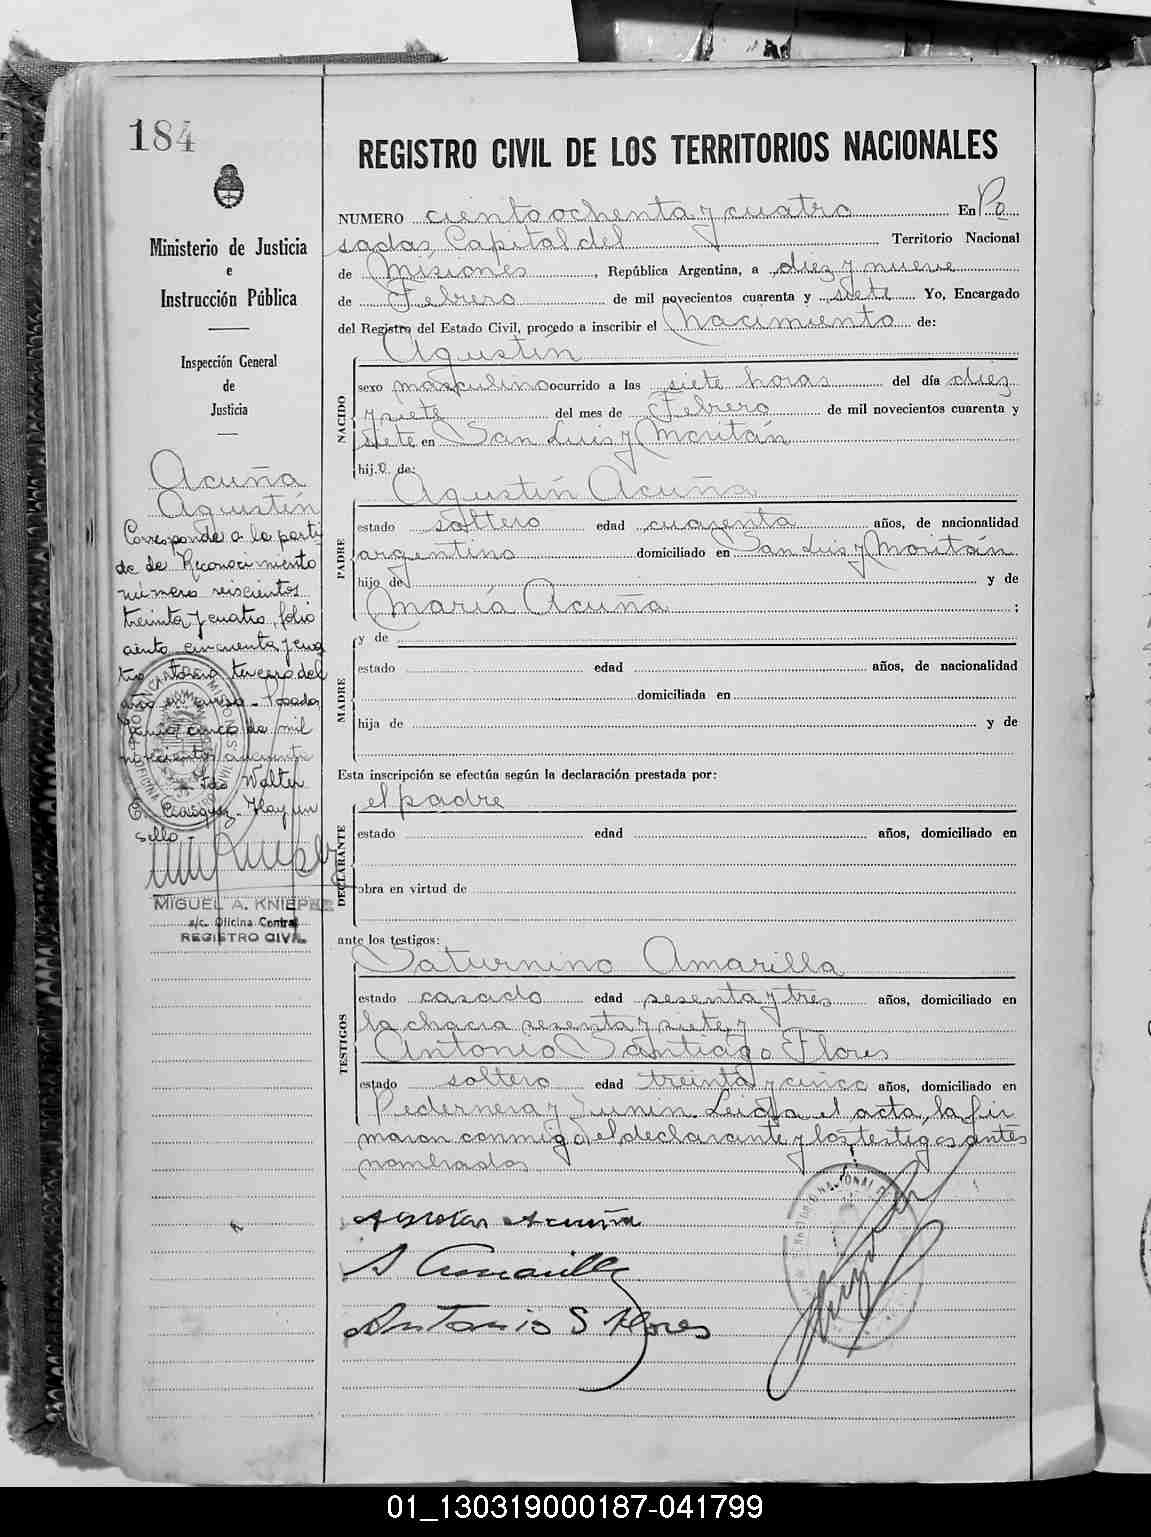 184
Ministerio de Justicia
e
Instrucción Pública
Inspección General
de
Justicia
Acuña
Agustín
Corresponde a la parti
da de Reconocimiento
número seiscientos
treinta y cuatro, folio
ciento cincuenta y cua
tro, tomo tercero del
año en curso. Posadas
cinco de mil
novecientos cincuenta
Fdo Walter
Hay un
sello.
MIGUEL A. KNIEPHZ
a/c. Oficina Central
REGISTRO CIVIL
REGISTRO CIVIL DE LOS TERRITORIOS NACIONALES
NUMERO ciento ochenta y cuatro En Po
sadas, Capital del Territorio Nacional
de Misiones, República Argentina, a diez y nueve
de Febrero de mil novecientos cuarenta y siete Yo, Encargado
del Registro del Estado Civil, procedo a inscribir el Nacimiento de:
NACIDO
Agustín
sexo masculino ocurrido a las siete horas del día diez
y siete del mes de Febrero de mil novecientos cuarenta y
siete en San Luis y Moritán
hijo de:
PADRE
Agustín Acuña
estado soltero edad cuarenta años, de nacionalidad
argentino domiciliado en San Luis y Moritán
hijo de y de
María Acuña ;
MADRE
y de
estado edad años, de nacionalidad
domiciliada en
hija de y de
Esta inscripción se efectúa según la declaración prestada por:
DECLARANTE
el padre
estado edad años, domiciliado en
obra en virtud de
ante los testigos:
TESTIGOS
Saturnino Amarilla
estado casado edad sesenta y tres años, domiciliado en
la chacra sesenta y siete y
Antonio Santiago Flores
estado soltero edad treinta y cinco años, domiciliado en
Pedernera y Junin. Leida el acta, la fir
maron conmigo el declarante y los testigos antes
nombrados
Agustin Acuña
S Amarilla
Antonio S Flores
01_130319000187-041799